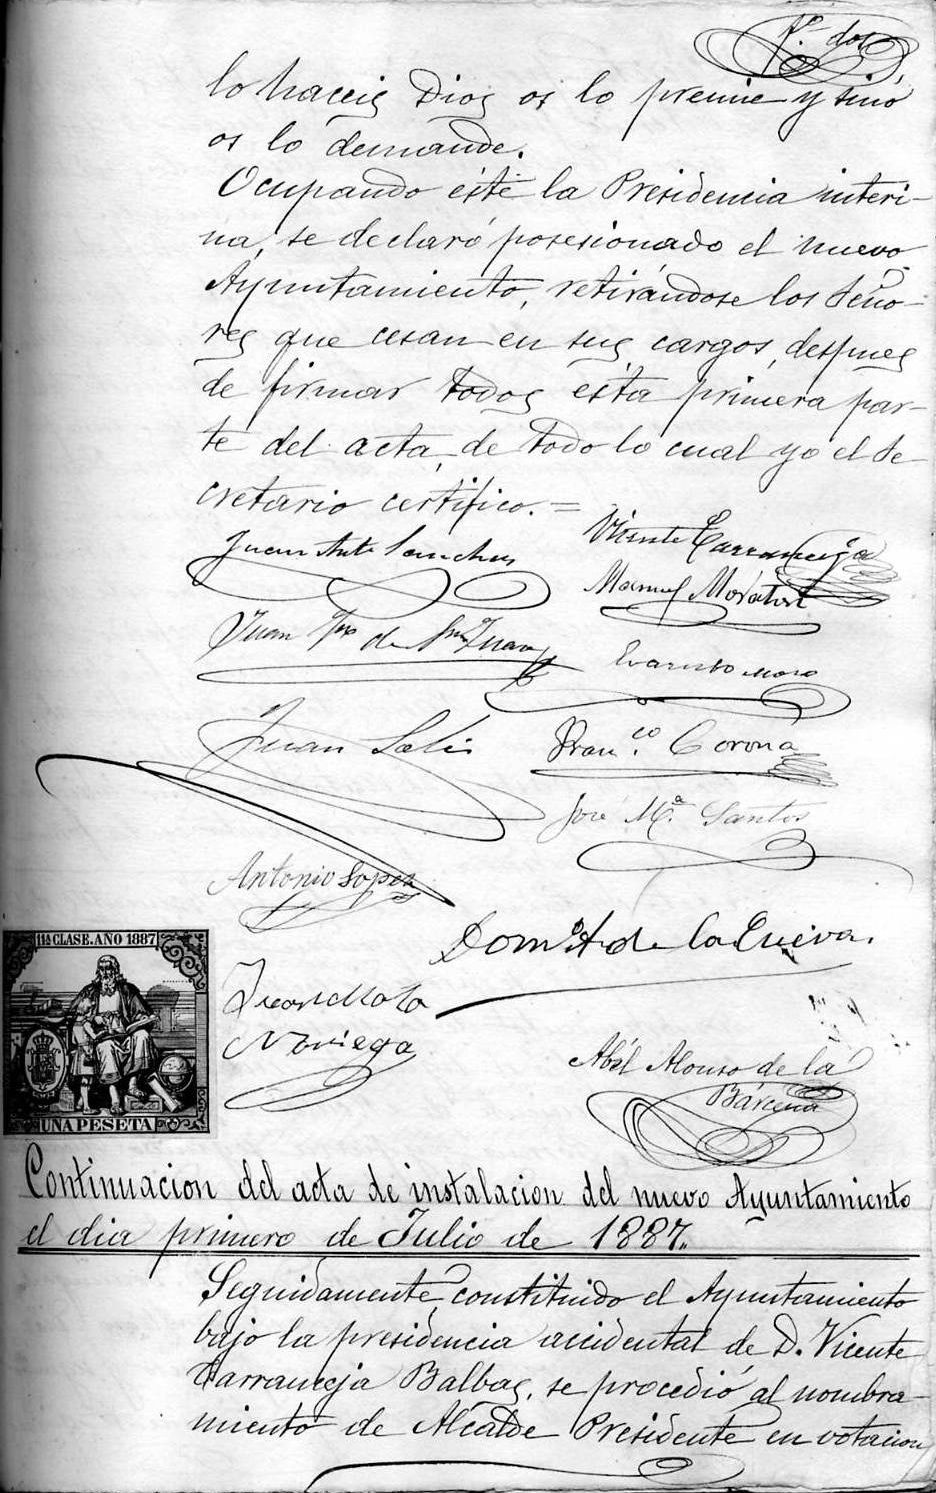 Fº. dos
lo haceis Dios os lo premie y sino
os lo demande.
Ocupando éste la Presidencia interi-
na, se declaró posesionado el nuevo
Ayuntamiento, retirándose los Seño-
res que cesan en sus cargos, despues
de firmar todos ésta primera par-
te del acta, de todo lo cual yo el Se-
cretario certifico. =
Vicente Tarranceja
Juan Antº Sanchez
Manuel
Juan de Sn Juan
Evaristo Moro
Juan Francº. Corona
José Mª. Santos
Antonio Lopez
Domº A. de la Cueva.
11ª CLASE. AÑO 1887
Juan Mata
Noriega
Abél Alonso de la
Bárcena
UNA PESETA
Continuacion del acta de instalacion del nuevo Ayuntamiento
el dia primero de Julio de 1887.
Seguidamente, constituido el Ayuntamiento
bajo la presidencia accidental de D. Vicente
Tarranceja Balbas, se procedió al nombra-
miento de Alcalde Presidente en votacion